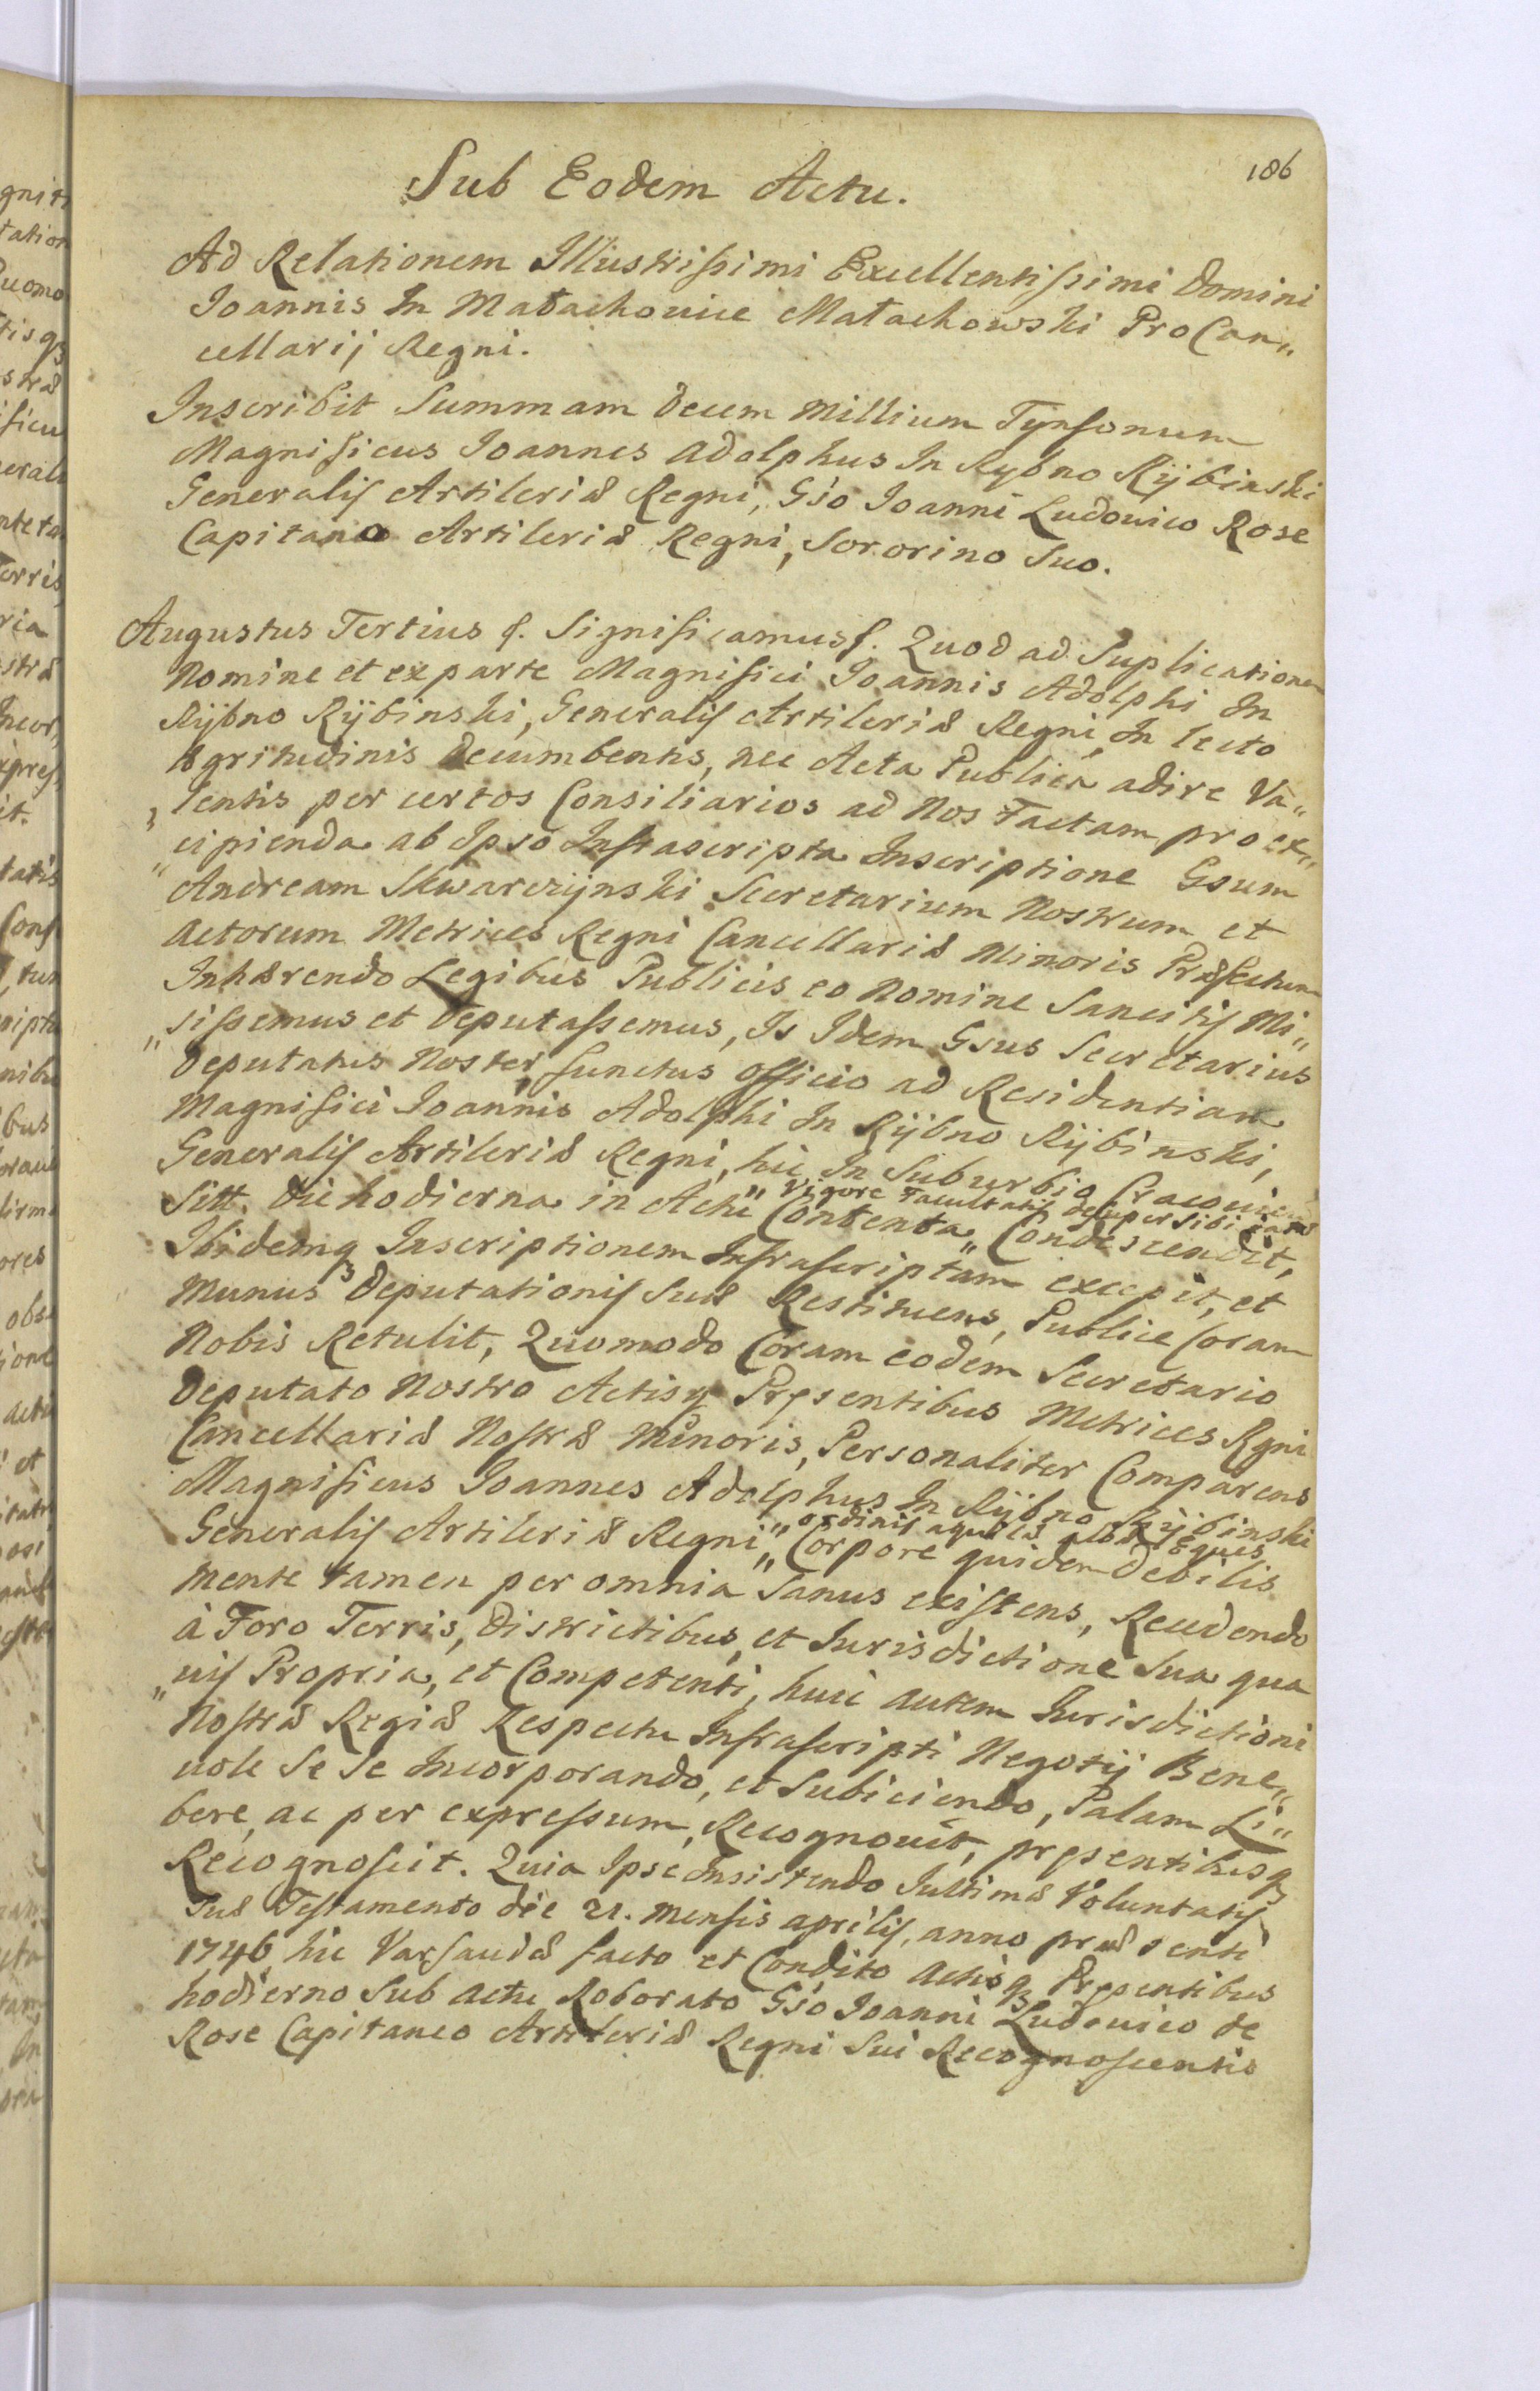 186
Sub Eodem Actu.
Ad Relationem Illustrissimi Excellentissimi Domini
Joannis In Małachowice Małachowski ProCan„
cellarij Regni.
Inscribit Summam decem Millium Tynfonum
Magnificus Joannes Adolphus In Rybno Rÿbinski
Generalis Artileriæ Regni, Gso Joanni Ludovico Rose
Capitaneo Artileriæ Regni, Sororino Suo.
Augustus Tertius &. Significamus &. Quod ad Suplicationem
Nomine et ex parte Magnifici Joannis Adolphi In
Rÿbno Rÿbinski, Generalis Artileriæ Regni, In lecto
Ægritudinis decumbentis, nec Acta Publica adire Va„
„lentis per certos Consiliarios ad Nos Factam, pro ex„
„cipienda ab Ipso Infrascripta Inscriptione Gsum
Andream Skwarczÿnski Secretarium Nostrum et
Actorum Metrices Regni Cancellariæ Minoris Præfectum
Inhærendo Legibus Publicis eo Nomine Sancitis Mi„
„sissemus et Deputassemus, Is Idem Gsus Secretarius
Deputatus Noster, functus officio ad Residentiam
Magnifici Joannis Adolphi In Rÿbno Rÿbinski,
Generalis Artileriæ Regni, hic In Suburbio Cracoviensi
vigore Facultatis desuper sibi datæ
Sitt. die hodierna in Actu Contenta„ Condescendit,
Ibidemq3 Inscriptionem Infrascriptam excepit, et
Munus Deputationis Suæ Restituens, Publice Coram
Nobis Retulit, Quomodo Coram eodem Secretario
Deputato Nostro Actisq3 Pręsentibus Metrices Rgni
Cancellariæ Nostræ Minoris, Personaliter Comparens
Magnificus Joannes Adolphus In Rÿbno Rÿbinski
ordinis aquilæ albæ eques
Generalis Artileriæ Regni„ Corpore quidem debilis
Mente tamen per omnia Sanus existens, Recedendo
à Foro Terris, Districtibus, et Jurisdictione Sua qua
„vis Propria, et Competenti, huic autem Jurisdictioni
Nostræ Regiæ Respectu Infrascripti Negotij Bene„
vole Se Se Incorporando, et Subiciendo, Palam Li„
bere, ac per expressum, Recognovit, pręsentibusq3
Recognoscit. Quia Ipse Insistendo Sultimæ Voluntatis
Suæ Testamento die 21. Mensis Aprilis, anno præsenti
1746 hic Varsaviæ facto et Condito Actisq3 Pręsentibus
hodierno Sub Actu Roborato Gso Joanni Ludovico de
Rose Capitaneo Artileriæ Regni Sui Recognoscentis